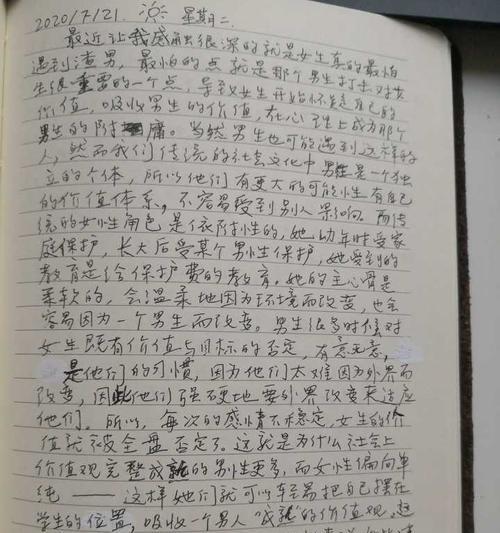 2020/7/21. 星期二.
最近让我感触很深的就是女生真的最怕
遇到渣男，最怕的点就是那个男生打击对女
生很重要的一个点，导致女生开始怀疑自己的
价值，吸收男生的价值，在心理上成为那个
男生的附庸。当然男生也可能遇到这样的
人，然而我们传统的社会文化中男性是一个独
立的个体，所以他们有更大的可能性有自己
的价值体系，不容易受到别人影响。而传
统的女性角色是依附性的，她幼年时受家
庭保护，长大后受某个男性保护，她受到的
教育是给保护费的教育。她的主心骨是
柔软的，会温柔地因为环境而改变，也会
容易因为一个男生而改变。男生很多时候对
女生既有价值与目标的否定，有意无意，
是他们的习惯，因为他们太难因为外界而
改变，因此他们强硬地要外界改变来适应
他们。所以，每次的感情不稳定，女生的价
值就被全盘否定了。这就是为什么社会上
价值观完整成就的男性更多，而女性偏向单
纯——这样她们就可以轻易把自己摆在
学生的位置，吸收一个男人“成就”的价值观，